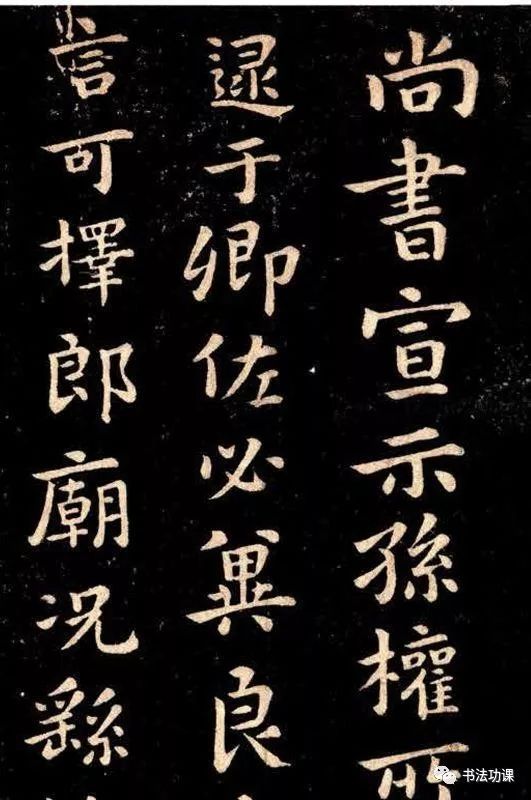 尚書宣示孫權所
逮于卿佐必冀良
言可擇郎廟况繇
书法功课